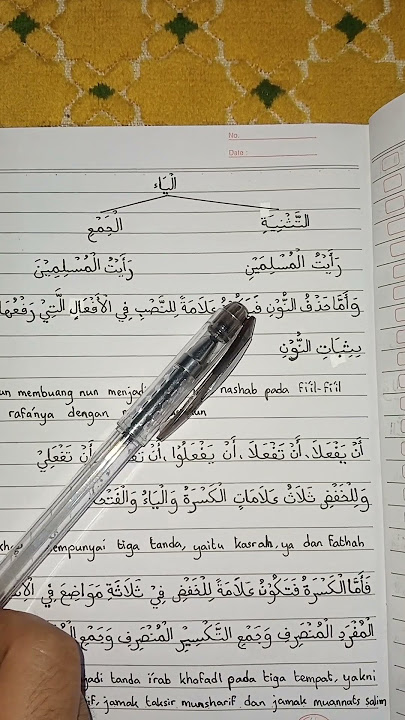 No.
Date :
الْيَاء
التَّثْنِيَةِ الْجَمْع
رَأَيْتُ الْمُسْلِمَيْنِ رَأَيْتُ الْمُسْلِمِيْنَ
وَأَمَّا حَذْفُ النُّوْنِ عَلَامَةً لِلنَّصْبِ فِي الْأَفْعَالِ الَّتِيْ رَفْعُهَا
بِثَبَاتِ النُّوْنِ
membuang nun nashab pada Fi'il-Fi'il
rafa'nya dengan
أَنْ يَفْعَلَا، أَنْ تَفْعَلَا، أَنْ يَفْعَلُوْا، أَنْ أَنْ تَفْعَلِيْ
وَلِلْخَفْضِ ثَلَاثُ عَلَامَاتٍ الْكَسْرَةُ وَالْيَاءُ
mempunyai tiga tanda, yaitu kasrah, ya dan fathah
فَأَمَّا الْكَسْرَةُ فَتَكُوْنُ عَلَامَةً لِلْخَفْضِ فِيْ ثَلَاثَةِ مَوَاضِعَ فِي
الْمُفْرَدِ الْمُنْصَرِفِ وَجَمْعِ التَّكْسِيْرِ الْمُنْصَرِفِ وَجَمْعِ
tanda i'rab khofadl pada tiga tempat, yakni
jamak taksir munsharif dan jamak muannats salim